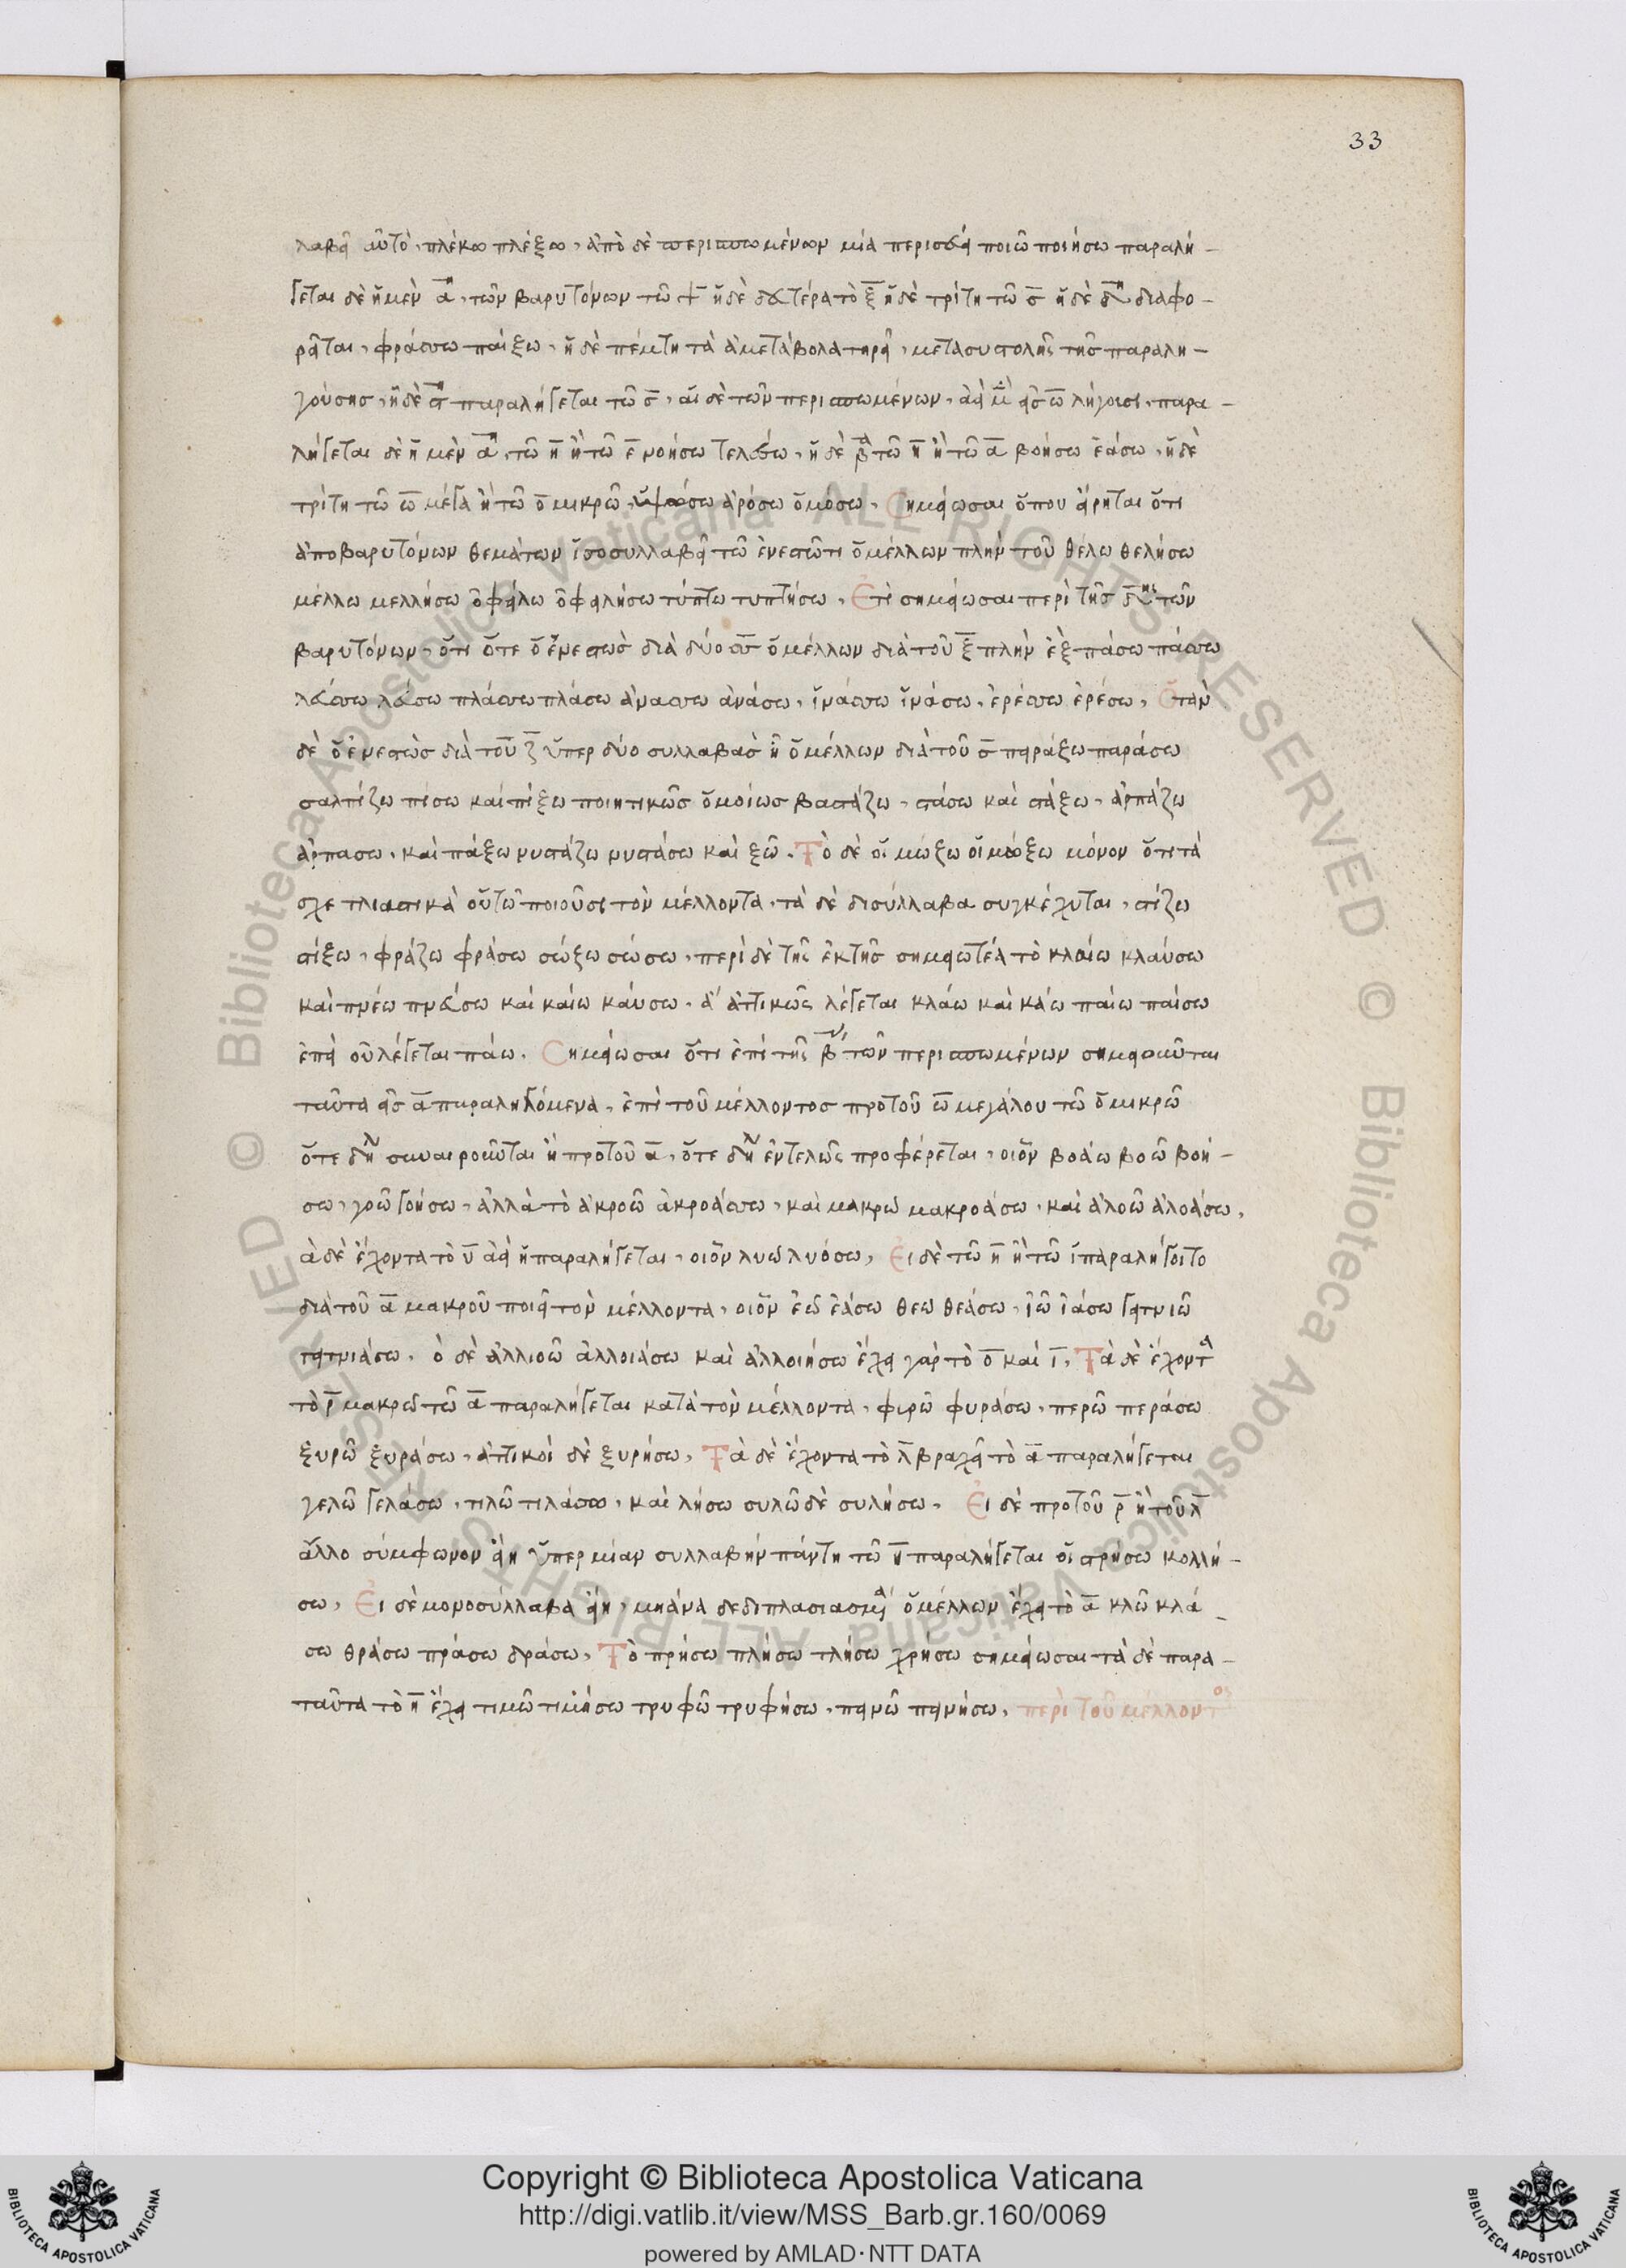 33
λαβεῖ αὐτὸ, πλέκω πλέξω, ἀπὸ δὲ περισπωμένων μία περισσεύει ποιῶ ποιήσω παραλή-
γεται δὲ ἡ μὲν α̅η, τῶν βαρυτόνων τῶ ψ̅ ἡ δὲ δευτέρα τὸ ξ̅ ἡ δὲ τρίτη τῶ σ̅ ἡ δὲ δ̅η διαφο-
ρεῖται, φράσσω παίξω, ἡ δὲ πέμτη τὰ ἀμετάβολα τηρεῖ, μετὰ συστολῆς τῆς παραλη-
γούσης, ἡ δὲ ϛ̅η παραλήγεται τῶ σ̅, αἱ δὲ τῶν περισπωμένων, ἀεὶ μὲν εἰς ω̅ λήγουσι, παρα-
λήγεται δὲ ἡ μὲν α̅η, τῶ η̅ ἢ τῶ ε̅ νοήσω τελέσω, ἡ δὲ β̅α τῶ η̅ ἢ τῶ α̅ βοήσω ἐάσω, ἡ δὲ
τρίτη τῶ ω̅ μέγα ἢ τῶ ο̅ μικρῶ, ὑψώσω ἀρόσω ὀμόσω, Σημείωσαι ὅπου εἴρηται ὅτι
ἀπὸ βαρυτόνων θεμάτων ἰσοσυλλαβεῖ τῶ ἐνεστῶτι ὁ μέλλων πλὴν τοῦ θέλω θελήσω
μέλλω μελλήσω ὀφείλω ὀφειλήσω τύπτω τυπτήσω, Ἔτι σημείωσαι περὶ τῆς δ̅ης τῶν
βαρυτόνων, ὅτι ὅτε ὁ ἐνεστὼς διὰ δύο σσ̅ ὁ μέλλων διὰ τοῦ ξ̅ πλὴν ἒξ πάσω πάσσω
λεύσσω λεύσω πλάσσω πλάσω ἀνάσσω ἀνάσω, ἱνάσσω ἱνάσω, ἐρέσσω ἐρέσω, Ὅταν
δὲ ὁ ἐνεστὼς διὰ τοῦ ζ̅ ὑπερ δύο συλλαβὰς ἢ ὁ μέλλων διὰ τοῦ σ̅ πειράξω παράσω
σαλπίζω πίσω καὶ πίξω ποιητικῶς ὁμοίως βαστάζω, στάσω καὶ στάξω, ἁρπάζω
ἁρπασω, καὶ πάξω νυστάζω νυστάσω καὶ ξῶ, Τὸ δὲ οἰμώξω οἰμώξω μόνον ὅτι τὰ
σχετλιαστικὰ οὕτω ποιοῦσι τὸν μέλλοντα, τὰ δὲ δισύλλαβα συγκέχυται, στίζω
στίξω, φράζω φράσω σώξω σώσω, περὶ δὲ τῆς ἑκτῆς σημειωτέα τὸ κλαίω κλαύσω
καὶ πνέω πνεύσω καὶ καίω καύσω, ἀ ἀττικῶς λέγεται κλάω καὶ κάω παίω παίσω
ἐπεὶ οὐ λέγεται πάω. Σημείωσαι ὅτι ἐπὶ τῆς β̅ τῶν περισπωμένων σημειοῦνται
ταῦτα εἰς α̅ παραληγόμενα, ἐπὶ τοῦ μέλλοντος πρὸ τοῦ ω̅ μεγάλου τῶ ο̅ μικρῶ
ὅτε δὴλ συναιροῦνται ἢ πρὸ τοῦ α̅, ὅτε δὴλ ἐντελῶς προφέρεται, οἷον βοάω βοῶ βοή-
σω, γοῶ γοήσω, ἀλλὰ τὸ ἀκροῶ ἀκροάσω, καὶ μακρῶ μακροάσω, καὶ ἀλοῶ ἀλοάσω,
ἀ δὲ ἔχοντα τὸ υ̅ ἀεὶ ἢ παραλήγεται, οἷον λυῶ λυόσω, Εἰ δὲ τῶ η̅ ἢ τῶ ι̅ παραλήγοιτο
διὰ τοῦ α̅ μακροῦ ποιεῖ τὸν μέλλοντα, οἷον ἐῶ ἐάσω θεῶ θεάσω, ἰῶ ἰάσω γειτνιῶ
γειτνιάσω. ὁ δὲ ἀλλιοῶ ἀλλοιάσω καὶ ἀλλοιήσω ἔχει γὰρ τὸ ο̅ καὶ ι̅, Τὰ δὲ ἔχοντα
τὸ ρ̅ μακρῶ τῶ α̅ παραλήγεται κατὰ τὸν μέλλοντα, φιρῶ φυράσω, περῶ περάσω
ξυρῶ ξυράσω, ἀττικοὶ δὲ ξυρήσω, Τὰ δὲ ἔχοντα τὸ λ̅ βραχεῖ τὸ α̅ παραλήγεται
γελῶ γελάσω, τιλῶ τιλάσω, καὶ λήσω συλῶ δὲ συλήσω, Εἰ δὲ πρὸ τοῦ ρ̅ ἢ τοῦ λ̅
ἄλλο σύμφωνον εἴη ὑπερ μίαν συλλαβὴν πάντη τῶ η̅ παραλήγεται οἱ στρήσω κολλή-
σω, Εἰ δὲ μονοσύλλαβα εἴη, μὴ ἀνα δεδιπλασιασμα ὁ μέλλων ἔχει τὸ α̅ κλῶ κλά-
σω θράσω πράσω δράσω, Τὸ πρήσω πλήσω τλήσω χρήσω σημείωσαι τὰ δὲ παρα-
ταῦτα τὸ η̅ ἔχει τιμῶ τιμήσω τρυφῶ τρυφήσω, πεινῶ πεινήσω, περὶ τοῦ μέλλοντος
Copyright © Biblioteca Apostolica Vaticana
http://digi.vatlib.it/view/MSS_Barb.gr.160/0069
powered by AMLAD·NTT DATA